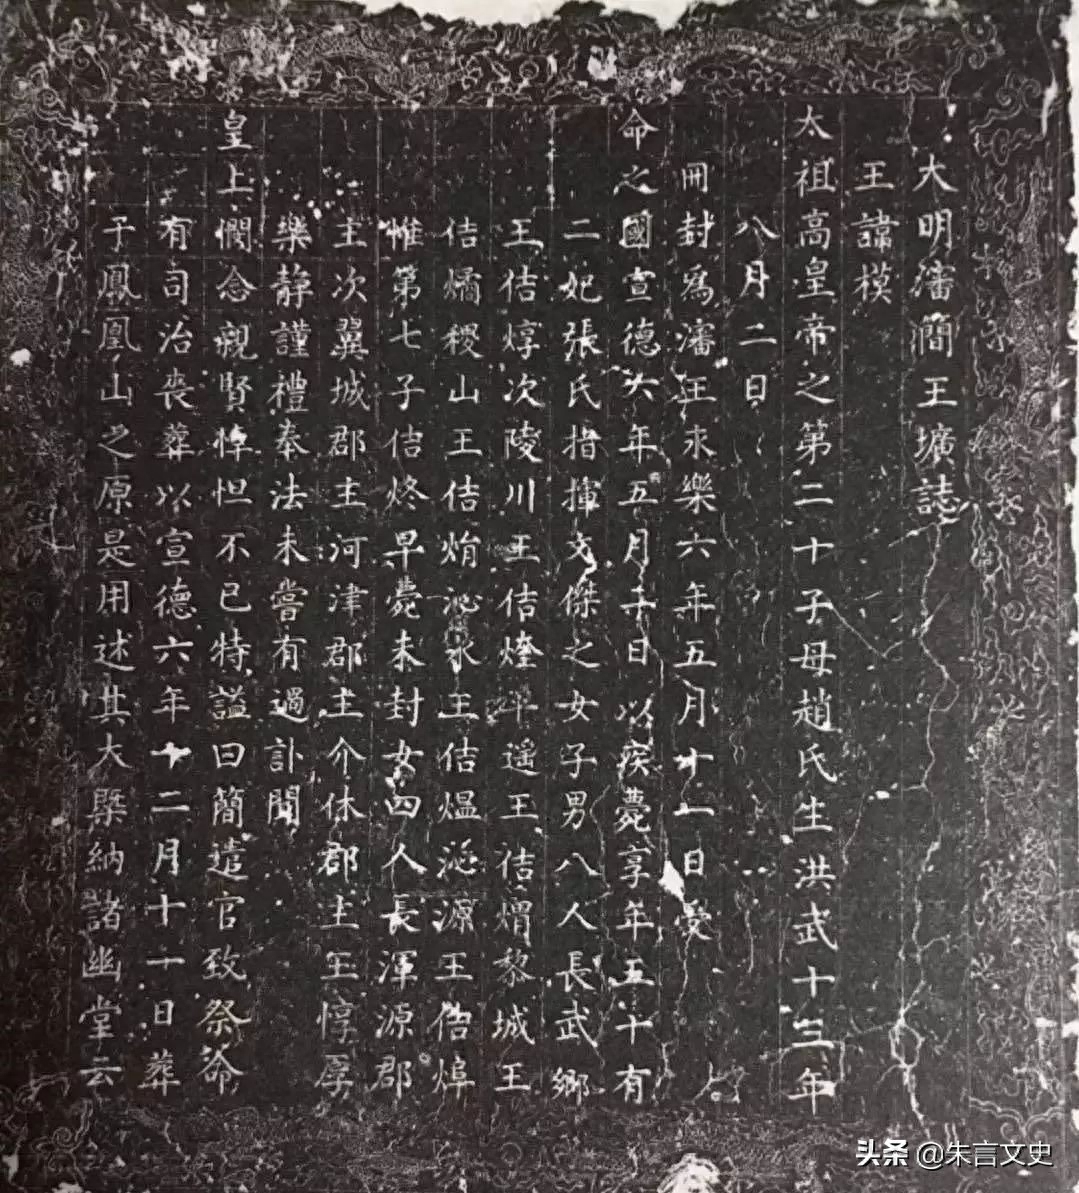 大明瀋簡王壙誌
王諱模
太祖高皇帝之第二十子母趙氏生洪武十三年
八月二日
冊封為瀋王永樂六年五月十一日受
命之國宣德六年五月二十日以疾薨享年五十有
二妃張氏指揮文傑之女子男八人長武鄉
王佶焞次陵川王佶㸅平遙王佶焨黎城王
佶𤐧稷山王佶焇沁水王佶熅沁源王佶焞
惟第七子佶炵早薨未封女四人長渾源郡
主次翼城郡主河津郡主介休郡主王惇厚
樂靜謹禮奉法未嘗有過訃聞
皇上憫念親賢悼怛不已特謚曰簡遣官致祭命
有司治喪葬以宣德六年十二月十一日葬
于鳳凰山之原是用述其大槩納諸幽堂云
头条 @朱言文史